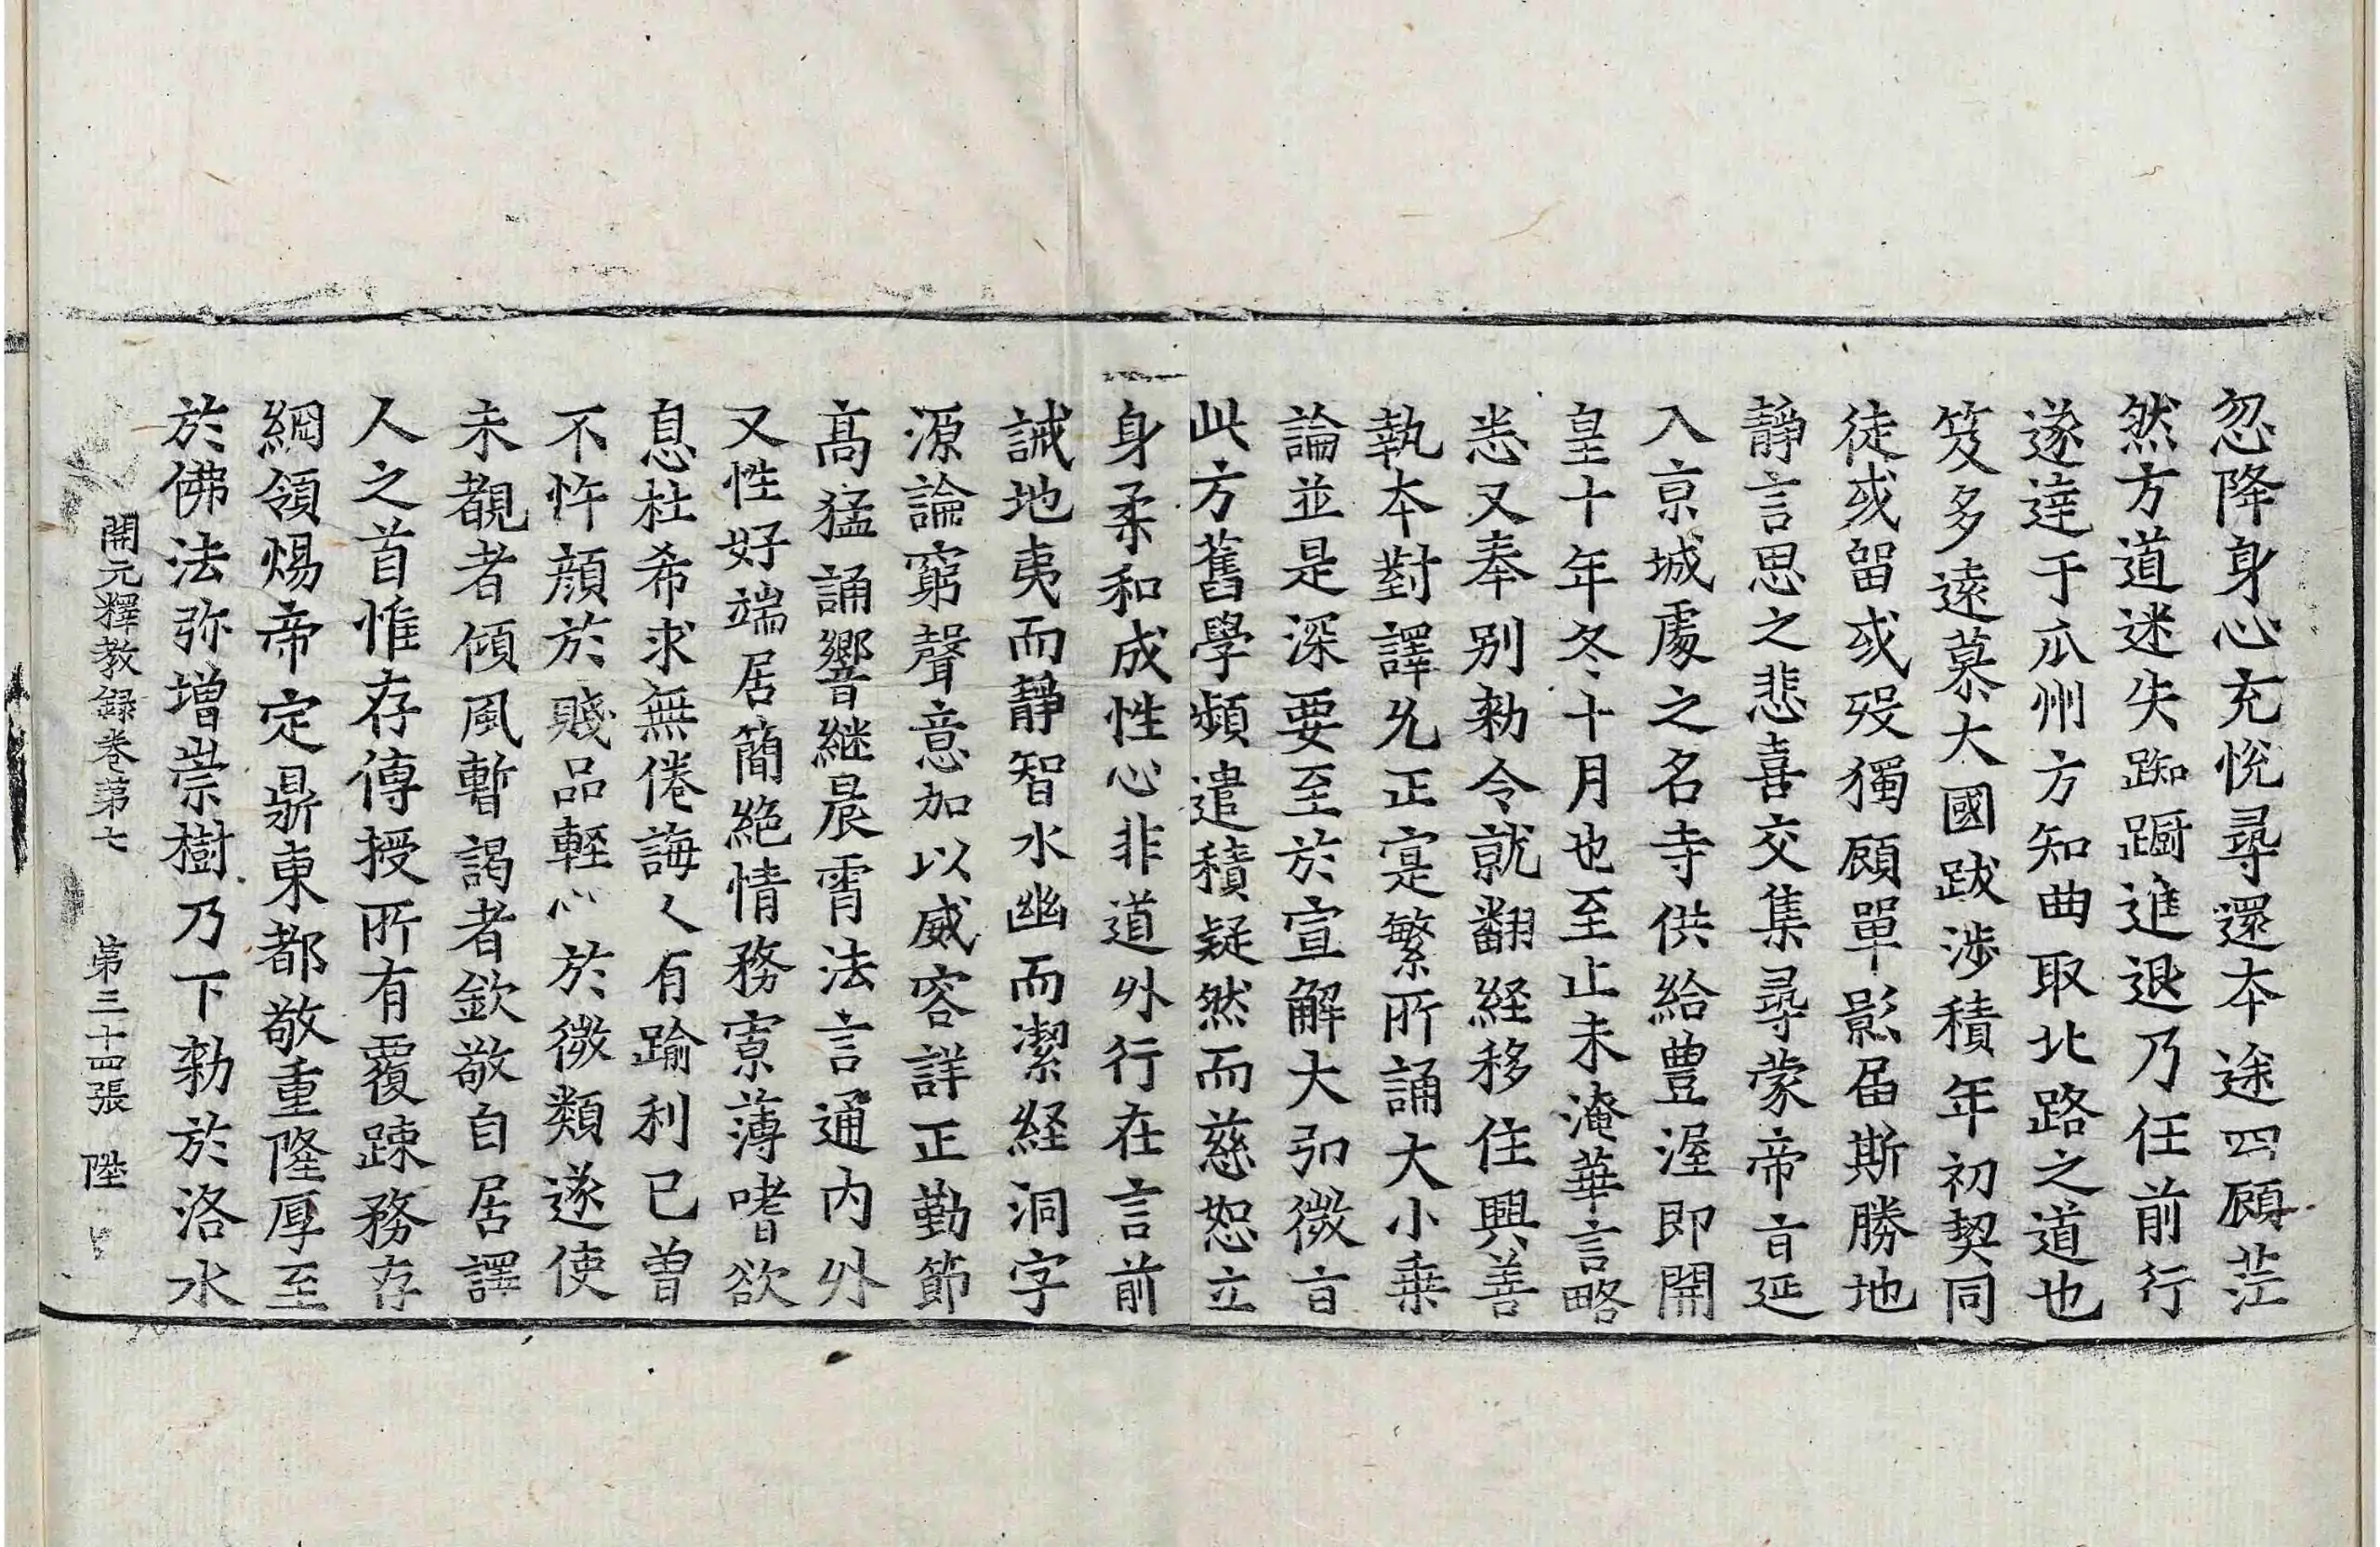 忽降身心充悅尋還本途四顧茫
然方道迷失踟蹰進退乃任前行
遂達于瓜州方知曲取北路之道也
笈多遠慕大國跋涉積年初契同
徒或留或歿獨顧單影届斯勝地
靜言思之悲喜交集尋蒙帝旨延
入京城處之名寺供給豊渥即開
皇十年冬十月也至止未淹華言略
悉又奉别勑令就翻経移住興善
執本對譯允正寔繁所誦大小乗
論並是深要至於宣解大弘微旨
此方舊學頻遣積疑然而慈恕立
身柔和成性心非道外行在言前
誡地夷而靜智水幽而潔経洞字
源論窮聲意加以威容詳正勤節
髙猛誦響継晨宵法言通内外
又性好端居簡絶情務寡薄嗜欲
息杜希求無倦誨人有踰利已曽
不忤顔於賤品輕心於微類遂使
未覩者傾風暫謁者欽敬自居譯
人之首惟存傳授所有覆踈務存
綱領煬帝定鼎東都敬重隆厚至
於佛法弥增崇樹乃下勑於洛水
開元釋教録卷苐七 第三十四張 陞